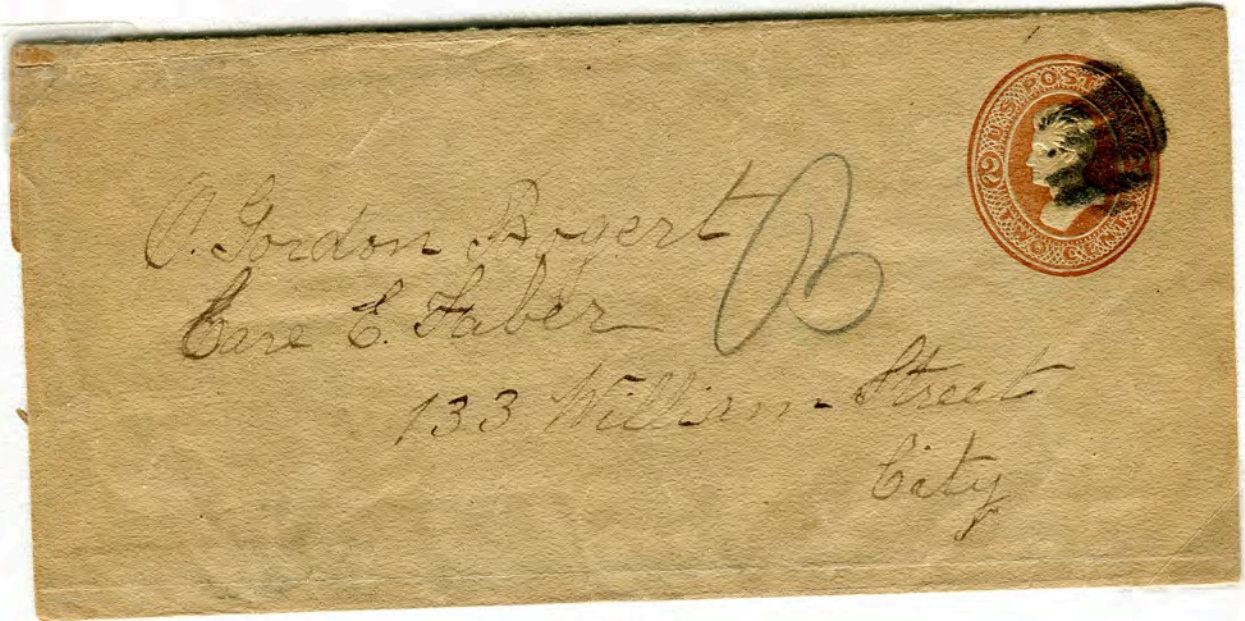 U.S. POSTAGE
2
TWO CENTS
O. Gordon Bogert
Care E. Faber
133 William-Street
City